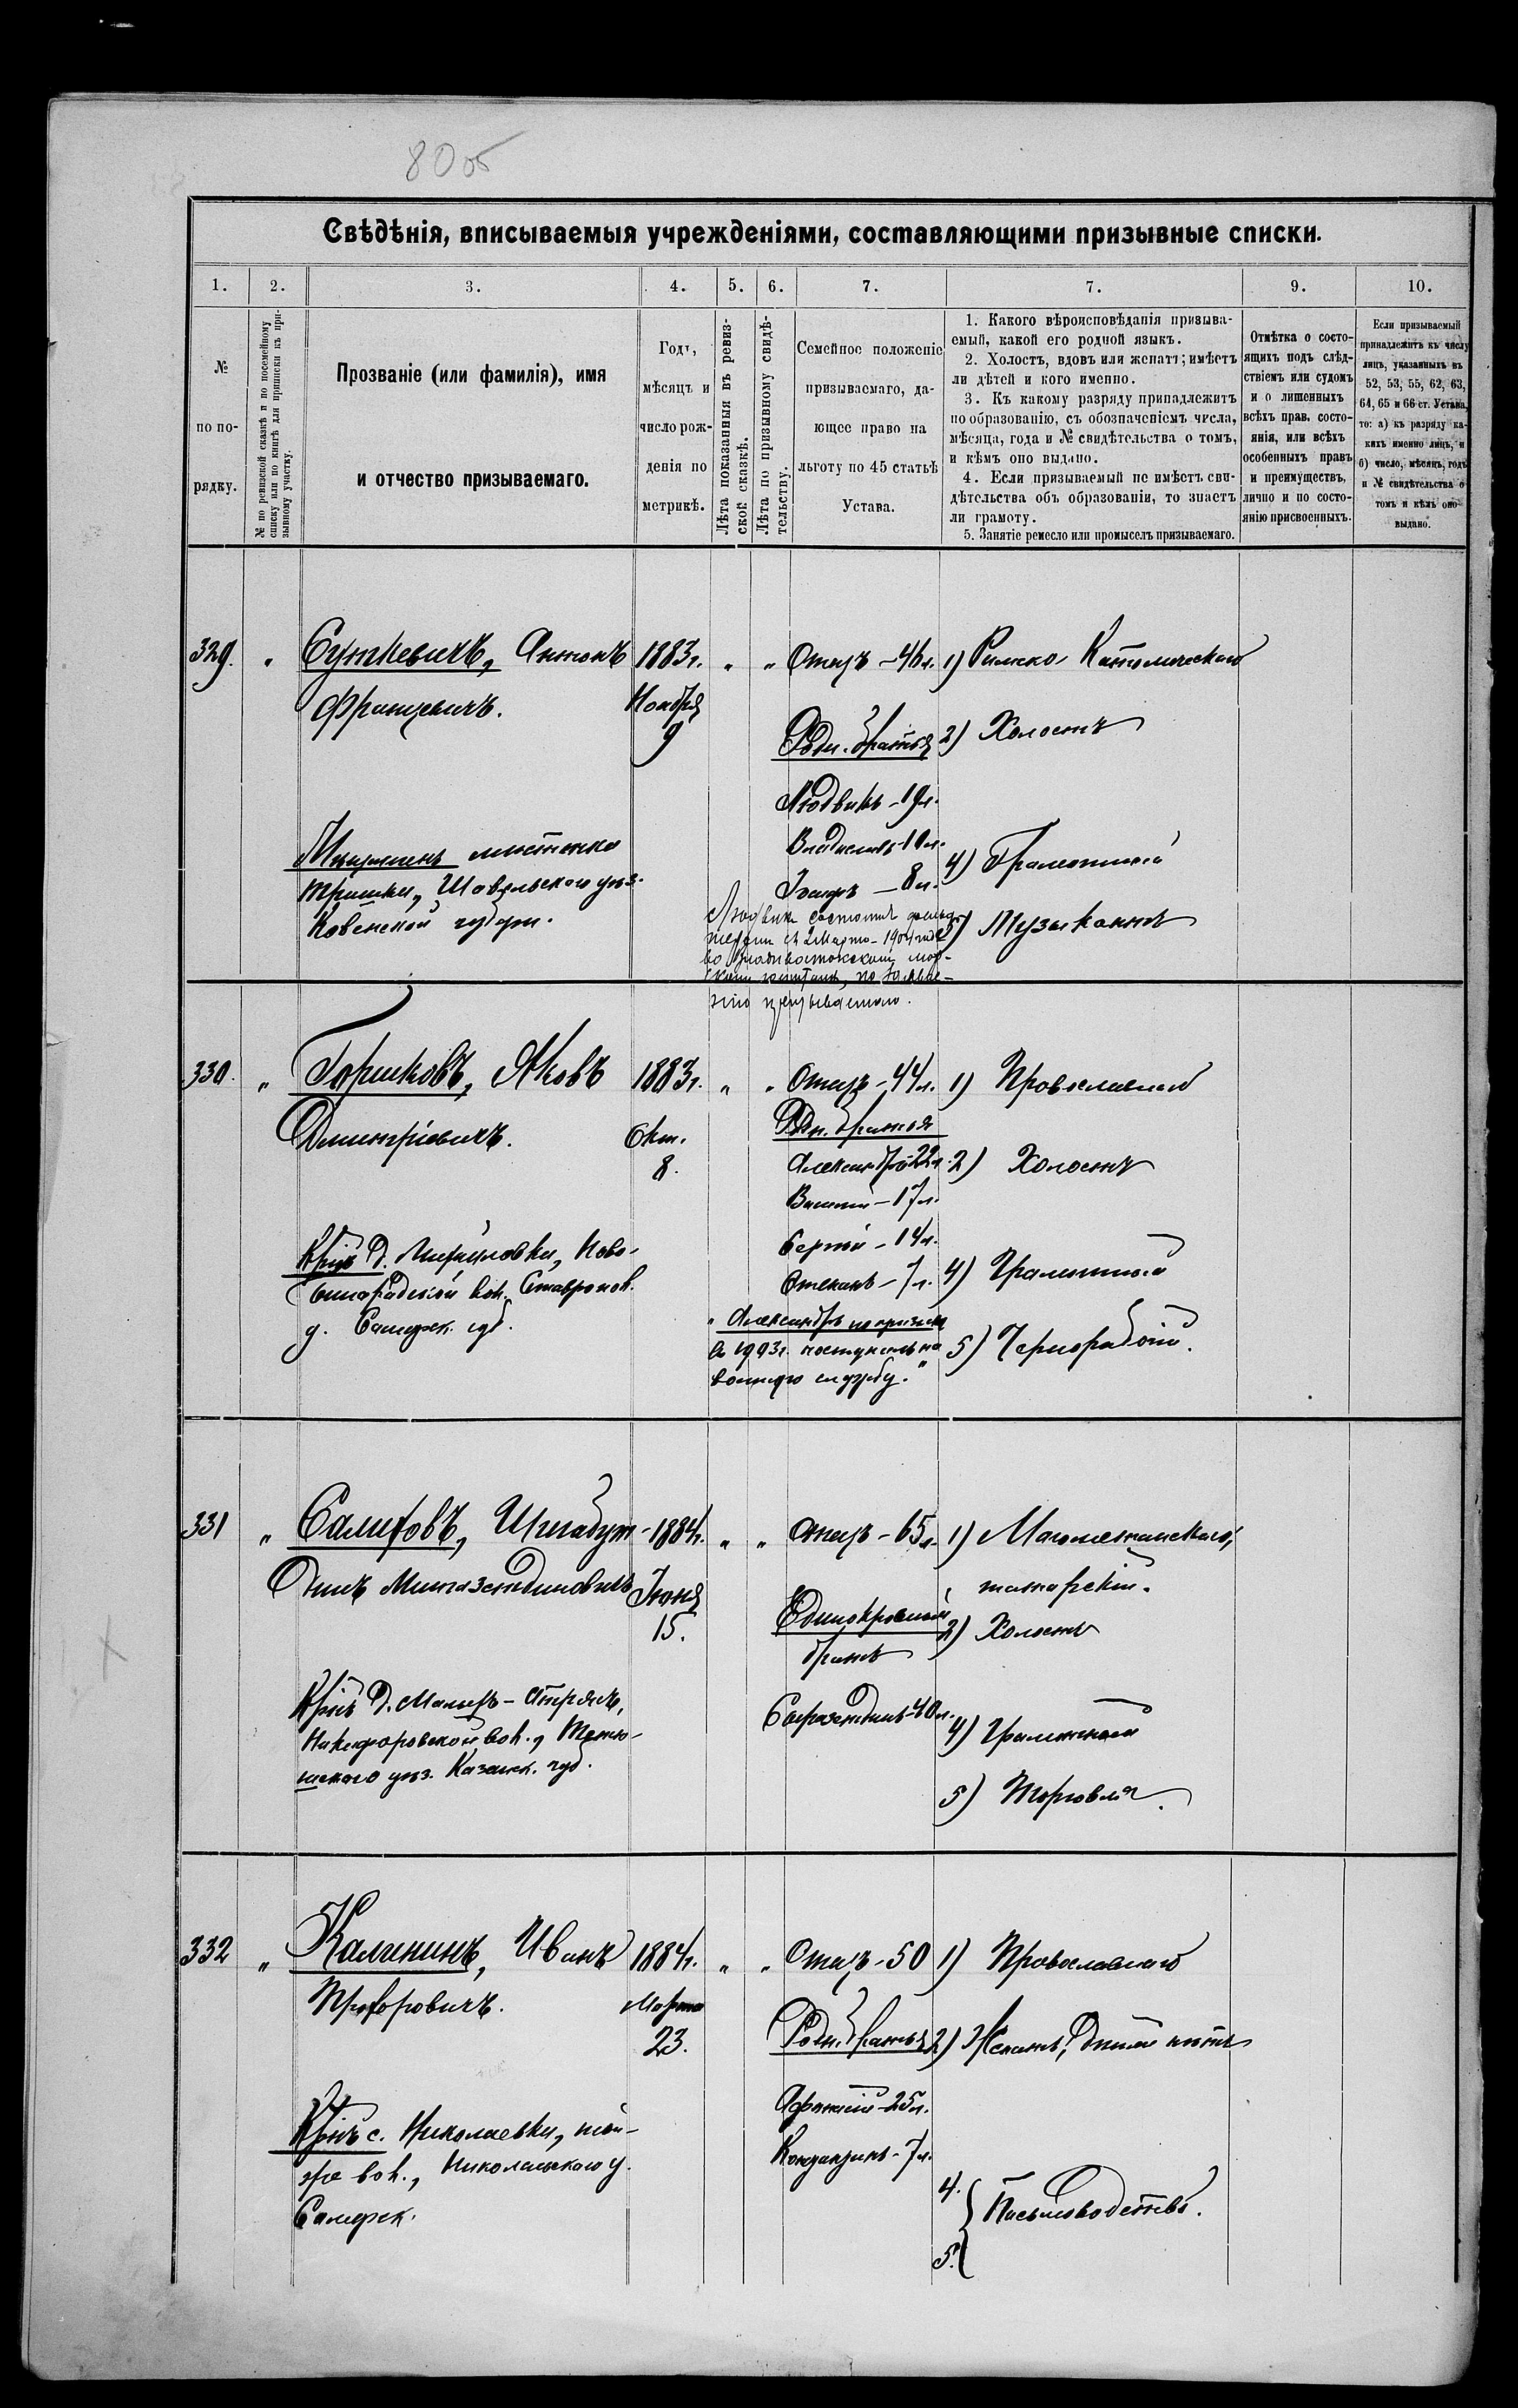 80об
Свѣдѣнія, вписываемыя учрежденіями, составляющими призывные списки.
1. 2. 3. 4. 5. 6. 7. 7. 9. 10.
№
по по-
рядку.
№ по ревизской сказкѣ и по посемейному
списку или по книгѣ для приписки къ при-
зывному участку.
Прозваніе (или фамилія), имя
и отчество призываемаго.
Годъ,
мѣсяцъ и
число рож-
денія по
метрикѣ.
Лѣта показанныя въ ревиз-
ской сказкѣ.
Лѣта по призывному свидѣ-
тельству.
Семейное положеніе
призываемаго, да-
ющее право на
льготу по 45 статьѣ
Устава.
1. Какого вѣроисповѣданія призыва-
емый, какой его родной языкъ.
2. Холостъ, вдовъ или женатъ; имѣетъ
ли дѣтей и кого именно.
3. Къ какому разряду принадлежитъ
по образованію, съ обозначеніемъ числа,
мѣсяца, года и № свидѣтельства о томъ,
и кѣмъ оно выдано.
4. Если призываемый не имѣетъ сви-
дѣтельства объ образованіи, то знаетъ
ли грамоту.
5. Занятіе ремесло или промыселъ призываемаго.
Отмѣтка о состо-
ящихъ подъ слѣд-
ствіемъ или судомъ
и о лишенныхъ
всѣхъ прав. состо-
янія, или всѣхъ
особенныхъ правъ
и преимуществъ,
лично и по состо-
янію присвоенныхъ.
Если призываемый
принадлежитъ къ числу
лицъ, указанныхъ въ
52, 53, 55, 62, 63,
64, 65 и 66 ст. Устава,
то: а) къ разряду ка-
кихъ именно лицъ, и
б) число, мѣсяцъ, годъ
и № свидѣтельства о
томъ и кѣмъ оно
выдано.
329. " Сушкевичъ, Антонъ 1883г. " " Отецъ - 46л. 1) Римско-Католическаго
Францевичъ. Ноября
9
Родн. братья 2) Холостъ
Людвикъ - 19л.
Владиславъ - 10л.
- 8л. 4) Грамотный
Мѣщанинъ мѣстечка
Тришки, Шавельскаго уѣз.
Ковенской губерн.
5) Музыкантъ
Людвикъ состоитъ
съ 2 Марта 1904 года
во Владивостокскомъ мор-
скомъ
призываемаго.
330. " Горшковъ, Яковъ 1883г. " " Отецъ - 44л. 1) Православнаго
Дмитріевичъ. Окт.
8.
Родн. братья
Александръ - 22л. 2) Холостъ
Василій - 17л.
Сергѣй - 14л.
Степанъ - 7л. 4) Грамотный
Кр-нъ д. Михайловки, Ново-
Бинарадской вол. Ставропол.
у. Самарск. губ.
"Александръ по призыву
въ 1903г. поступилъ на
военную службу."
5) Чернорабочій.
331 " Салиховъ, Шигабут- 1884г. " " Отецъ - 65л. 1) Магометанскаго,
динъ Июня татарскій.
15.
Единокровный 2) Холостъ
братъ
- 40л.
Кр-нъ д.
Никифоровской вол.,
уѣз. Казанск. губ.
4) Грамотный
5) Торговля.
332 " Калининъ, Иванъ 1884г. " " Отецъ - 50 1) Православнаго
Прохоровичъ. Марта
23.
Родн. братья 2) Женатъ, дѣтей нѣтъ
Афанасій - 25л.
- 7л.
Кр-нъ с. Николаевки, той-
же вол., Николаевскаго у.
Самарск.
4.
5. Письмоводствъ.